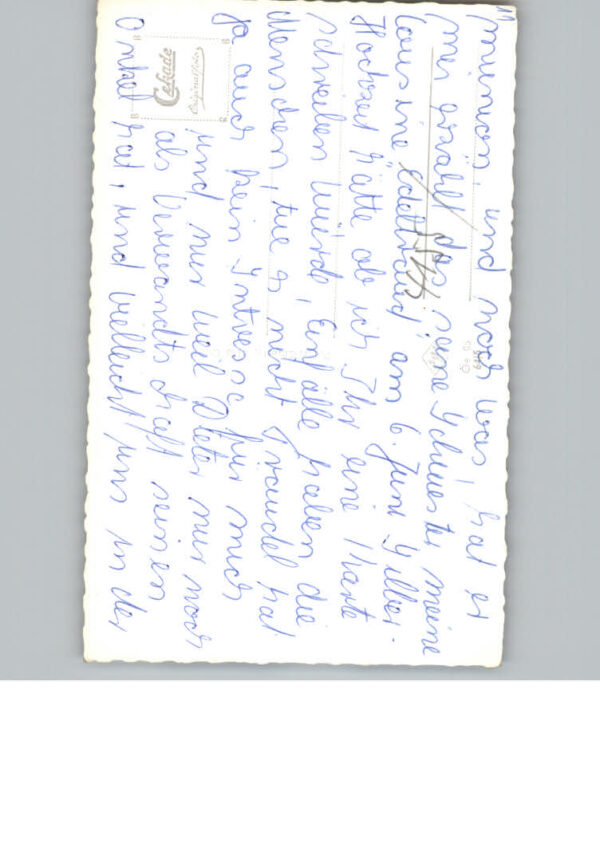 munion, und noch was hat er
mir erzählt das seine Schwester meine
Cousine Edeltraud, am 6. Juni Silber-
Hochzeit hätte ob ich Ihr eine Karte
schreiben würde, Einfälle haben die
Menschen, tue es nicht Traudel hat
ja auch kein Intresse für mich
und nur weil Dieter nur noch
als Verwandtschaft seinen
Onkel hat, und vielleicht uns in der
Cekade
Originalfoto
645